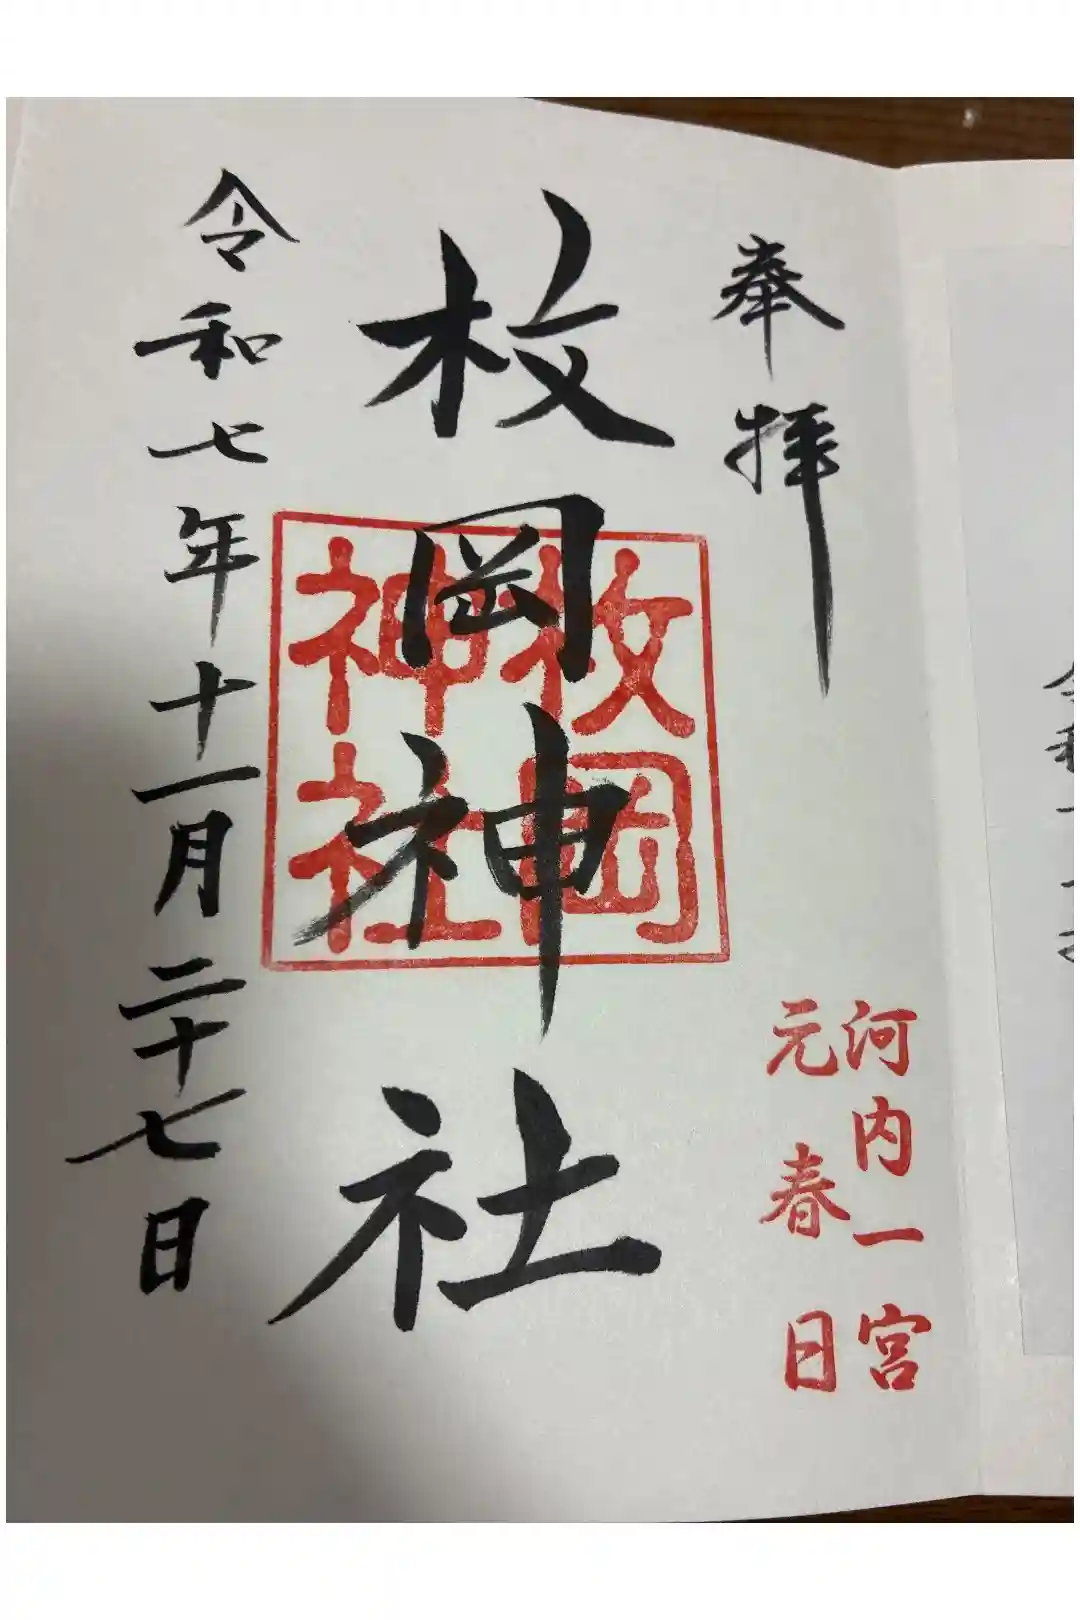 奉拝
河内一宮
元春日
枚岡神社
枚岡
神社
令和七年十一月二十七日